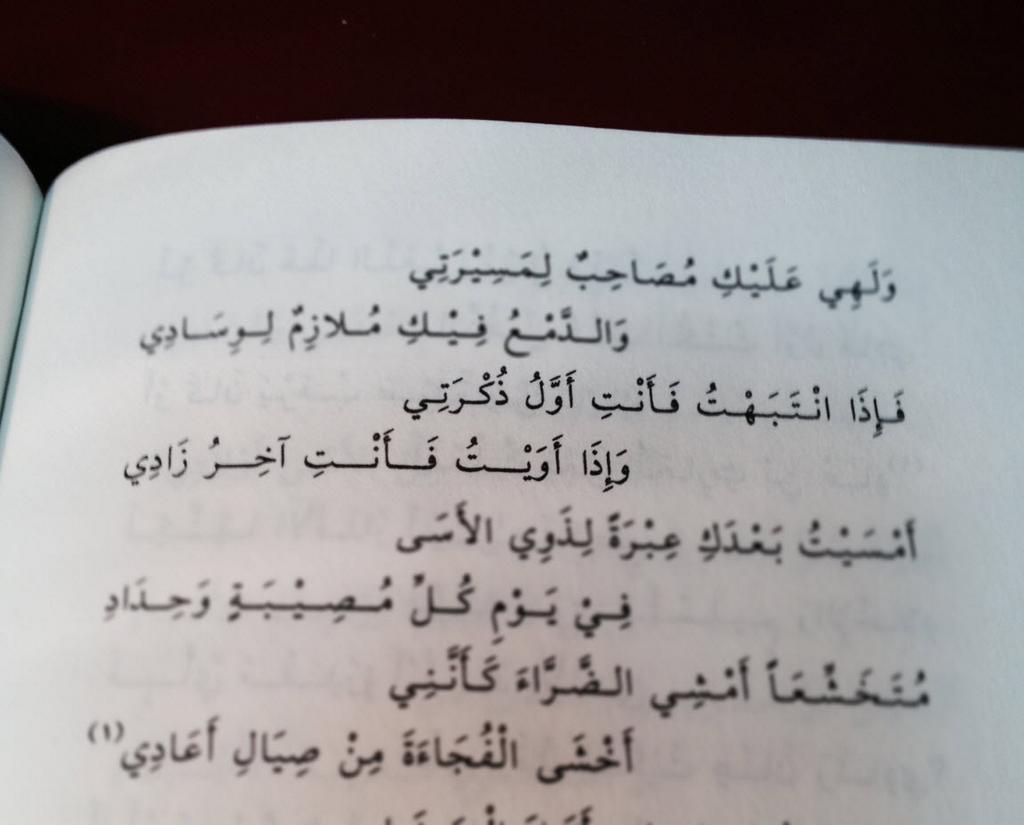 وَلَهِي عَلَيْكِ مُصَاحِبٌ لِمَسِيْرَتِي
وَالدَّمْعُ فِيْكِ مُلازِمٌ لِوِسَادِي
فَإِذَا انْتَبَهْتُ فَأَنْتِ أَوَّلُ ذُكْرَتِي
وَإِذَا أَوَيْتُ فَأَنْتِ آخِرُ زَادِي
أَمْسَيْتُ بَعْدَكِ عِبْرَةً لِذَوِي الأَسَى
فِيْ يَوْمِ كُلِّ مُصِيْبَةٍ وَحِدَادِ
مُتَخَشِّعَاً أَمْشِي الضَّرَّاءَ كَأَنَّنِي
أَخْشَى الْفُجَاءَةَ مِنْ صِيَالِ أَعَادِي(١)